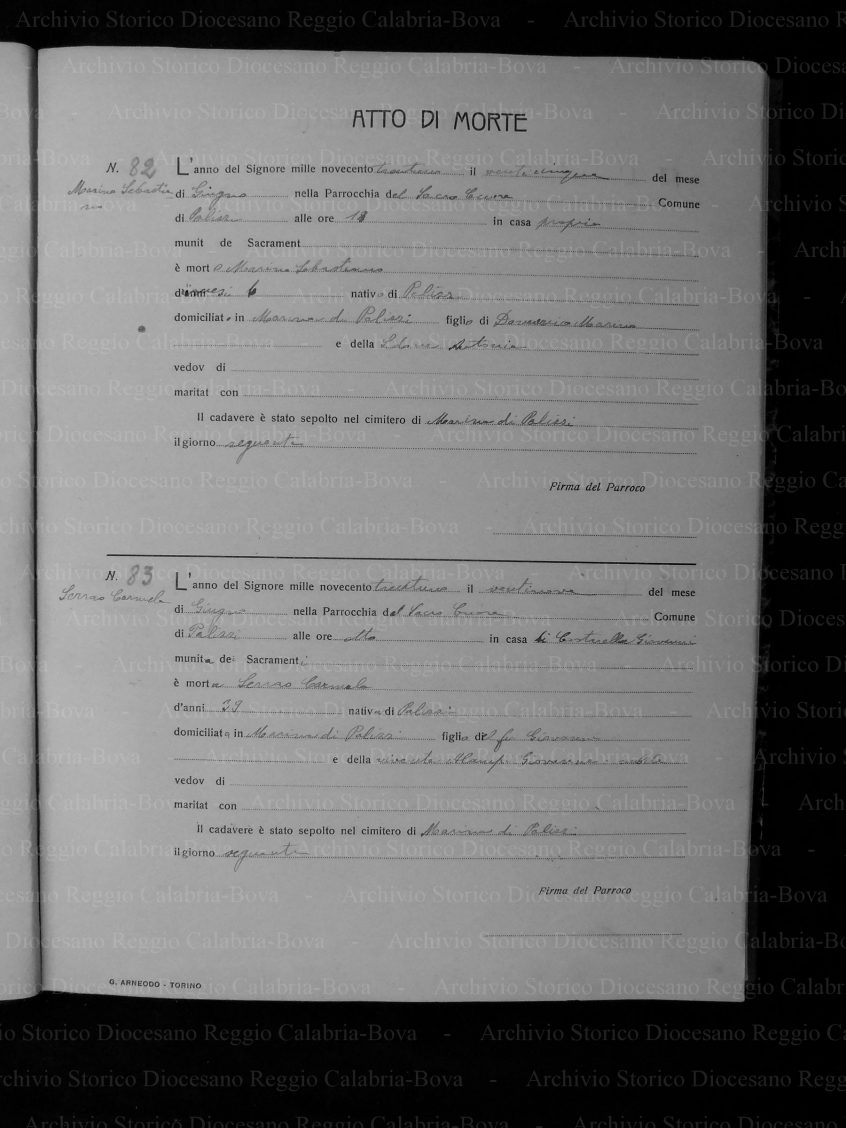 ATTO DI MORTE
N. 82 L'anno del Signore mille novecento trentuno il venticinque del mese
Marino Sebastiano
di Giugno nella Parrocchia del Sacro Cuore Comune
di Palizzi alle ore 18 in casa propria
munit de Sacrament
è morto Marino Sebastiano
mesi 6 nativo di Palizzi
domiciliato in Marina di Palizzi figlio di Domenico Marino
e della Antonia
vedov di
maritat con
Il cadavere è stato sepolto nel cimitero di Marina di Palizzi
il giorno seguente
Firma del Parroco
N. 83 L'anno del Signore mille novecento trentuno il ventinove del mese
Serrao Carmela
di Giugno nella Parrocchia del Sacro Cuore Comune
di Palizzi alle ore otto in casa di Giovanni
munita dei Sacramenti
è morta Serrao Carmela
d'anni 39 nativa di Palizzi
domiciliata in Marina di Palizzi figlia del fu Giovanni
e della vivente Giovanna nubile
vedov di
maritat con
Il cadavere è stato sepolto nel cimitero di Marina di Palizzi
il giorno seguente
Firma del Parroco
G. ARNEODO - TORINO
Archivio Storico Diocesano Reggio Calabria-Bova